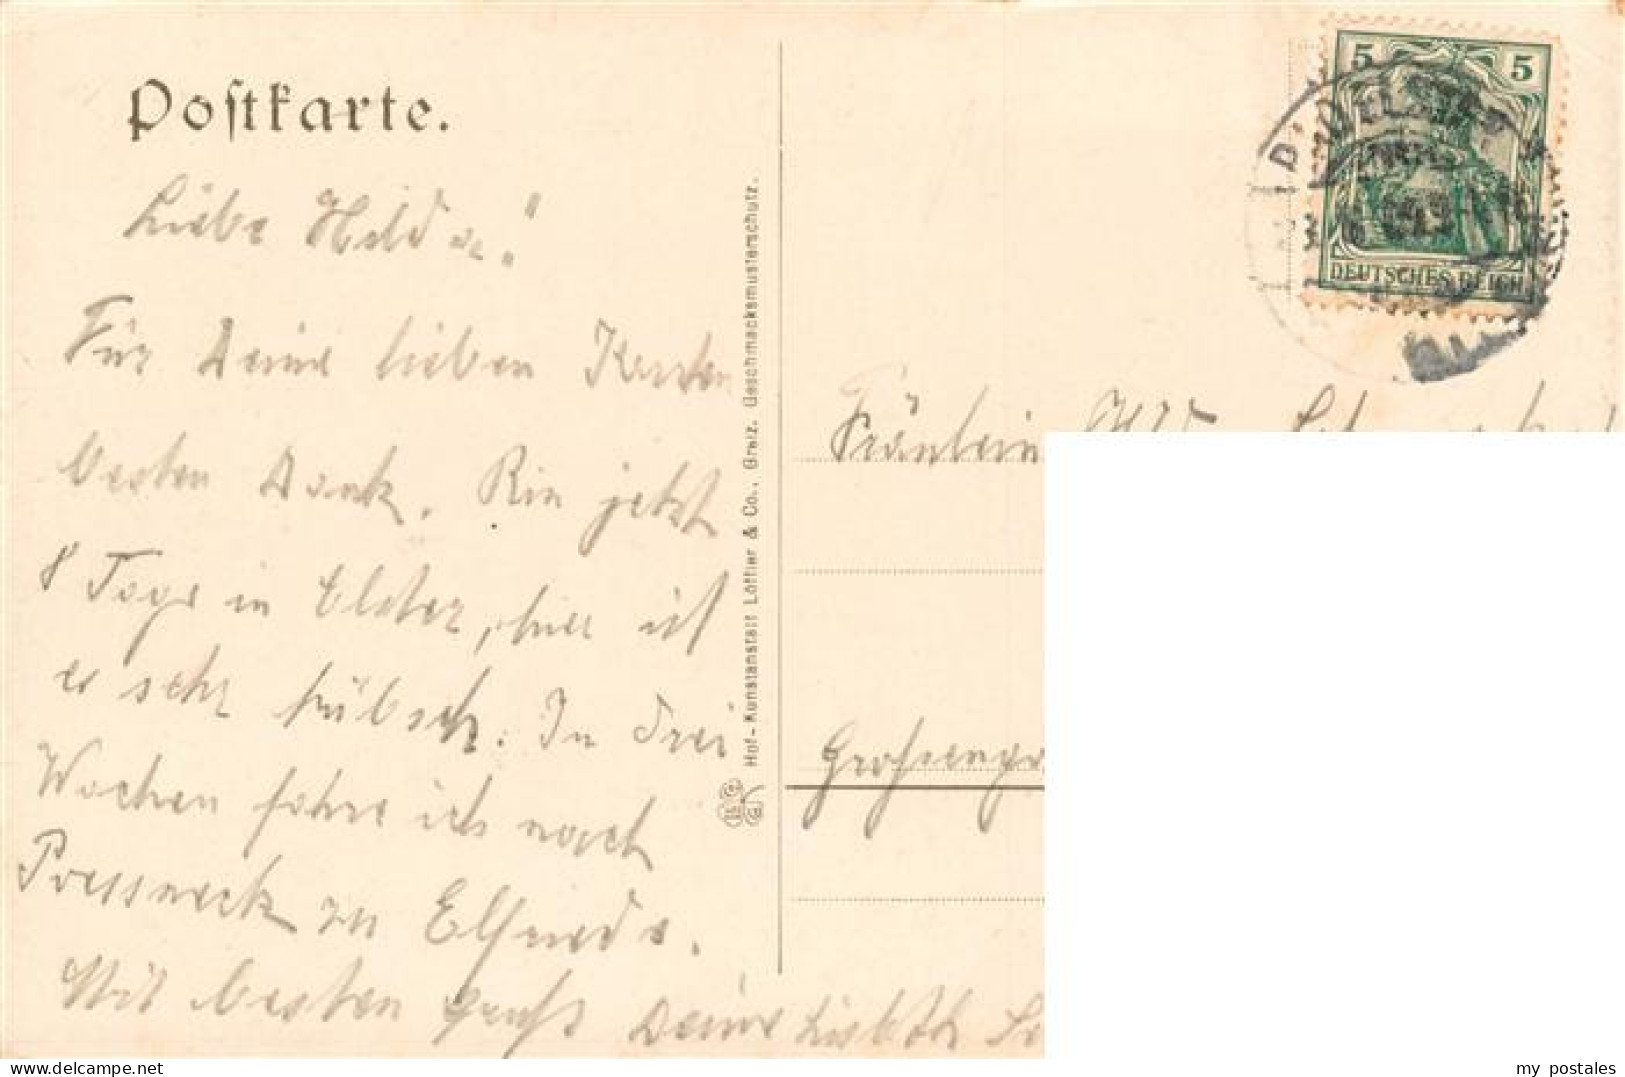 Postkarte.
Liebe Hilda!
Für Deine lieben Karten
besten Dank. Bin jetzt
8 Tage in Elster, hier ist
es sehr hübsch. In drei
Wochen fahre ich nach
Presseneck zu Elfriede.
Mit besten Gruß Deine
Hof-Kunstanstalt Löffler & Co., Greiz. Geschmacksmusterschutz.
5 5
DEUTSCHES REICH
Fräulein
my postales